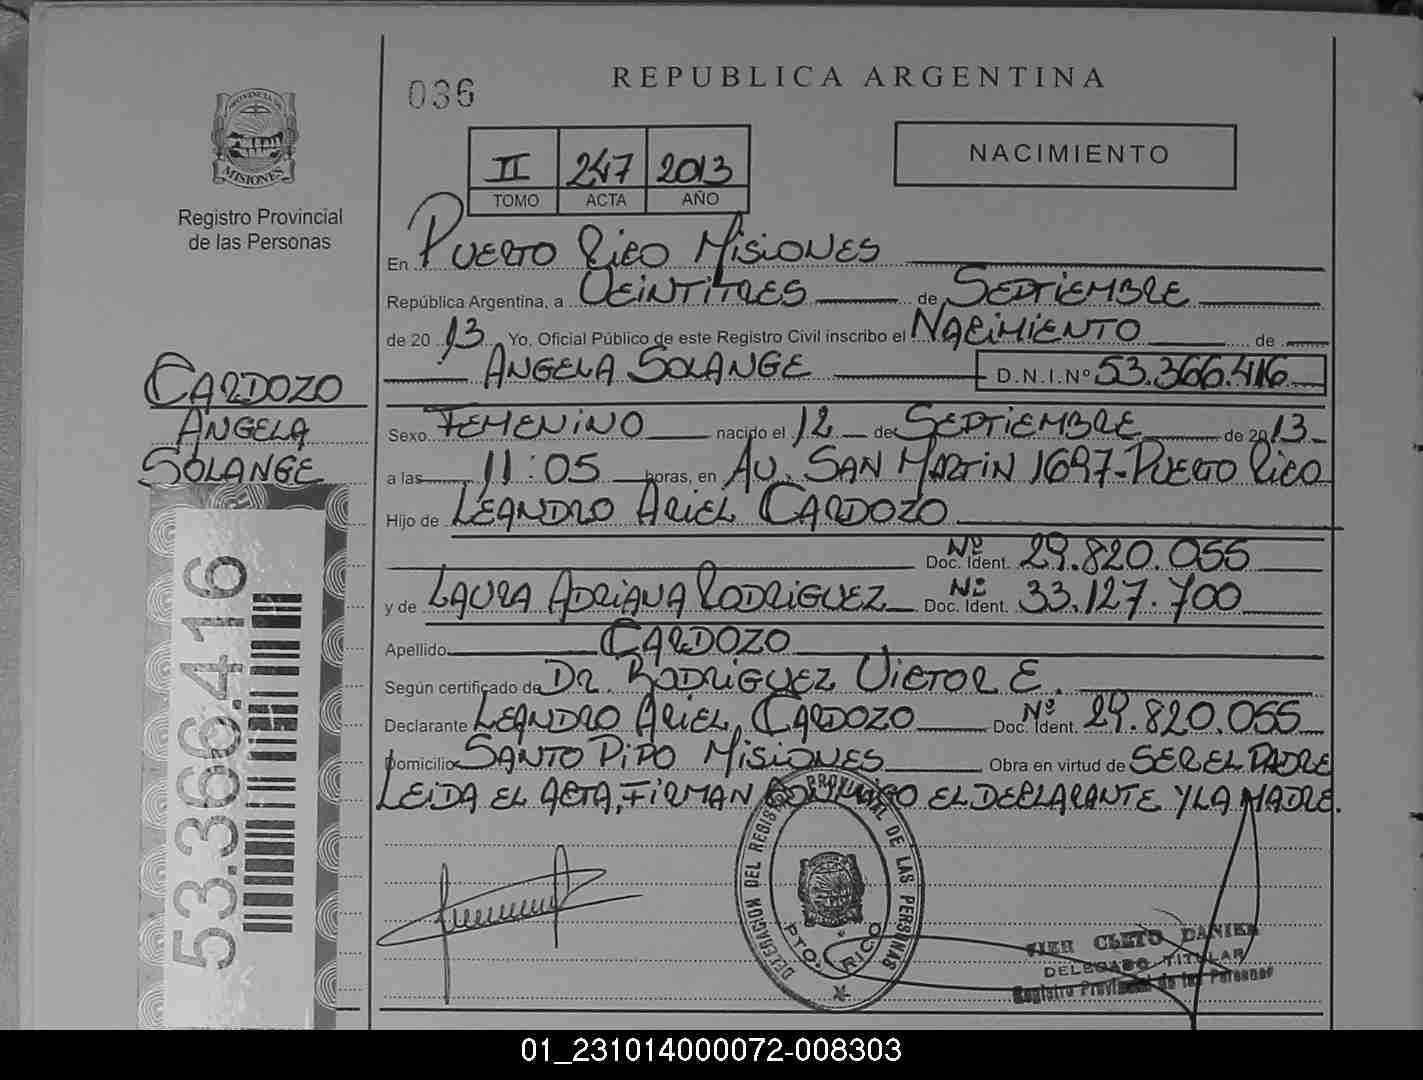 036
REPUBLICA ARGENTINA
PROVINCIA DE
MISIONES
Registro Provincial
de las Personas
II 247 2013
TOMO ACTA AÑO
NACIMIENTO
En PUERTO RICO MISIONES
República Argentina, a VEINTITRES de SEPTIEMBRE
de 2013 Yo, Oficial Público de este Registro Civil inscribo el NACIMIENTO de
ANGELA SOLANGE D.N.I.Nº 53.366.416
CARDOZO
ANGELA
SOLANGE
Sexo FEMENINO nacido el 12 de SEPTIEMBRE de 2013
a las 11:05 horas, en AV. SAN MARTIN 1697-PUERTO RICO
Hijo de LEANDRO ARIEL CARDOZO
Doc. Ident. Nº 29.820.055
y de LAURA ADRIANA RODRIGUEZ Doc. Ident. Nº 33.127.700
Apellido CARDOZO
Según certificado de DR. RODRIGUEZ VICTOR E.
Declarante LEANDRO ARIEL CARDOZO Doc. Ident. Nº 29.820.055
Domicilio SANTO PIPO MISIONES Obra en virtud de SER EL PADRE
LEIDA EL ACTA, FIRMAN CONMIGO EL DECLARANTE Y LA MADRE.
53.366.416
DELEGACION DEL REGISTRO PROVINCIAL DE LAS PERSONAS
PTO. RICO
CLETO DANIEL
DELEGADO TITULAR
Registro Provincial de las Personas
01_231014000072-008303